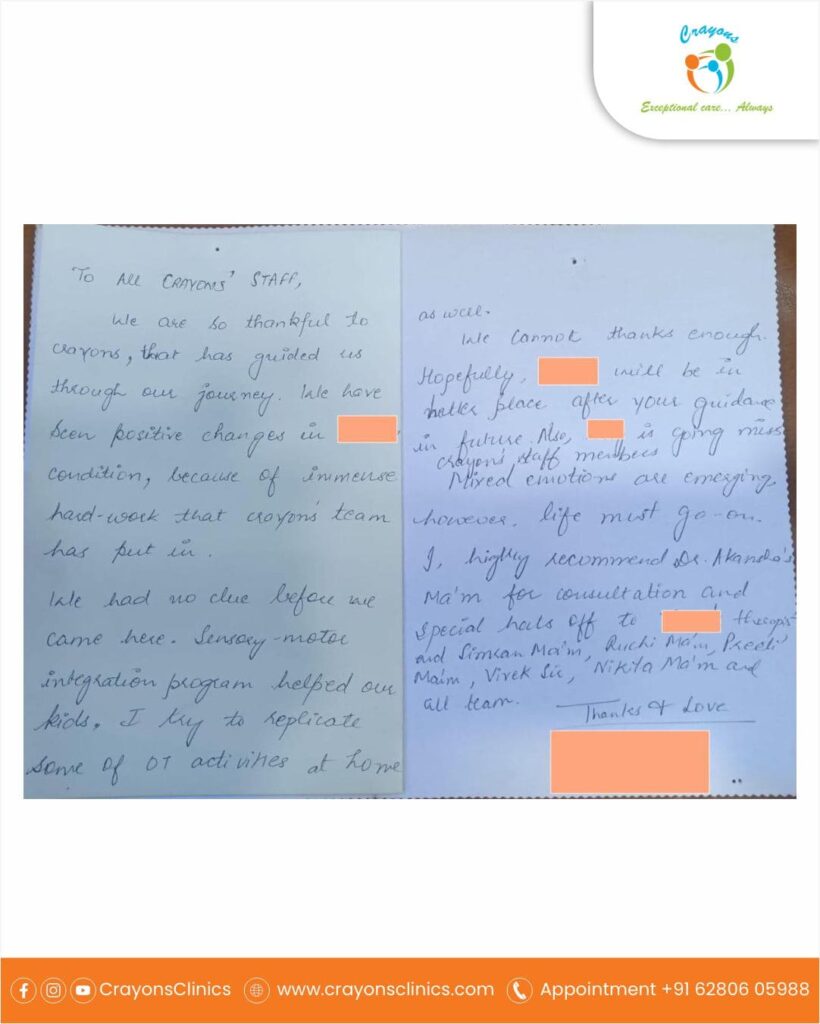 Crayons
Exceptional care... Always
To All CRAYONS' STAFF,
We are so thankful to
crayons, that has guided us
through our journey. We have
seen positive changes in
condition, because of immense
hard-work that crayons' team
has put in.
We had no clue before we
came here. Sensory-motor
integration program helped our
kids. I try to replicate
some of OT activities at home
as well.
We cannot thanks enough.
Hopefully, will be in
better place after your guidance
in future. Also, is going miss
crayon's staff members
Mixed emotions are emerging,
however, life must go-on.
I, highly recommend Dr. Akansha's
Ma'm for consultation and
special hats off to therapist
and Simran Ma'm, Ruchi Ma'm, Preeti
Ma'm, Vivek Sir, Nikita Ma'm and
all team.
Thanks & Love
CrayonsClinics www.crayonsclinics.com Appointment +91 62806 05988